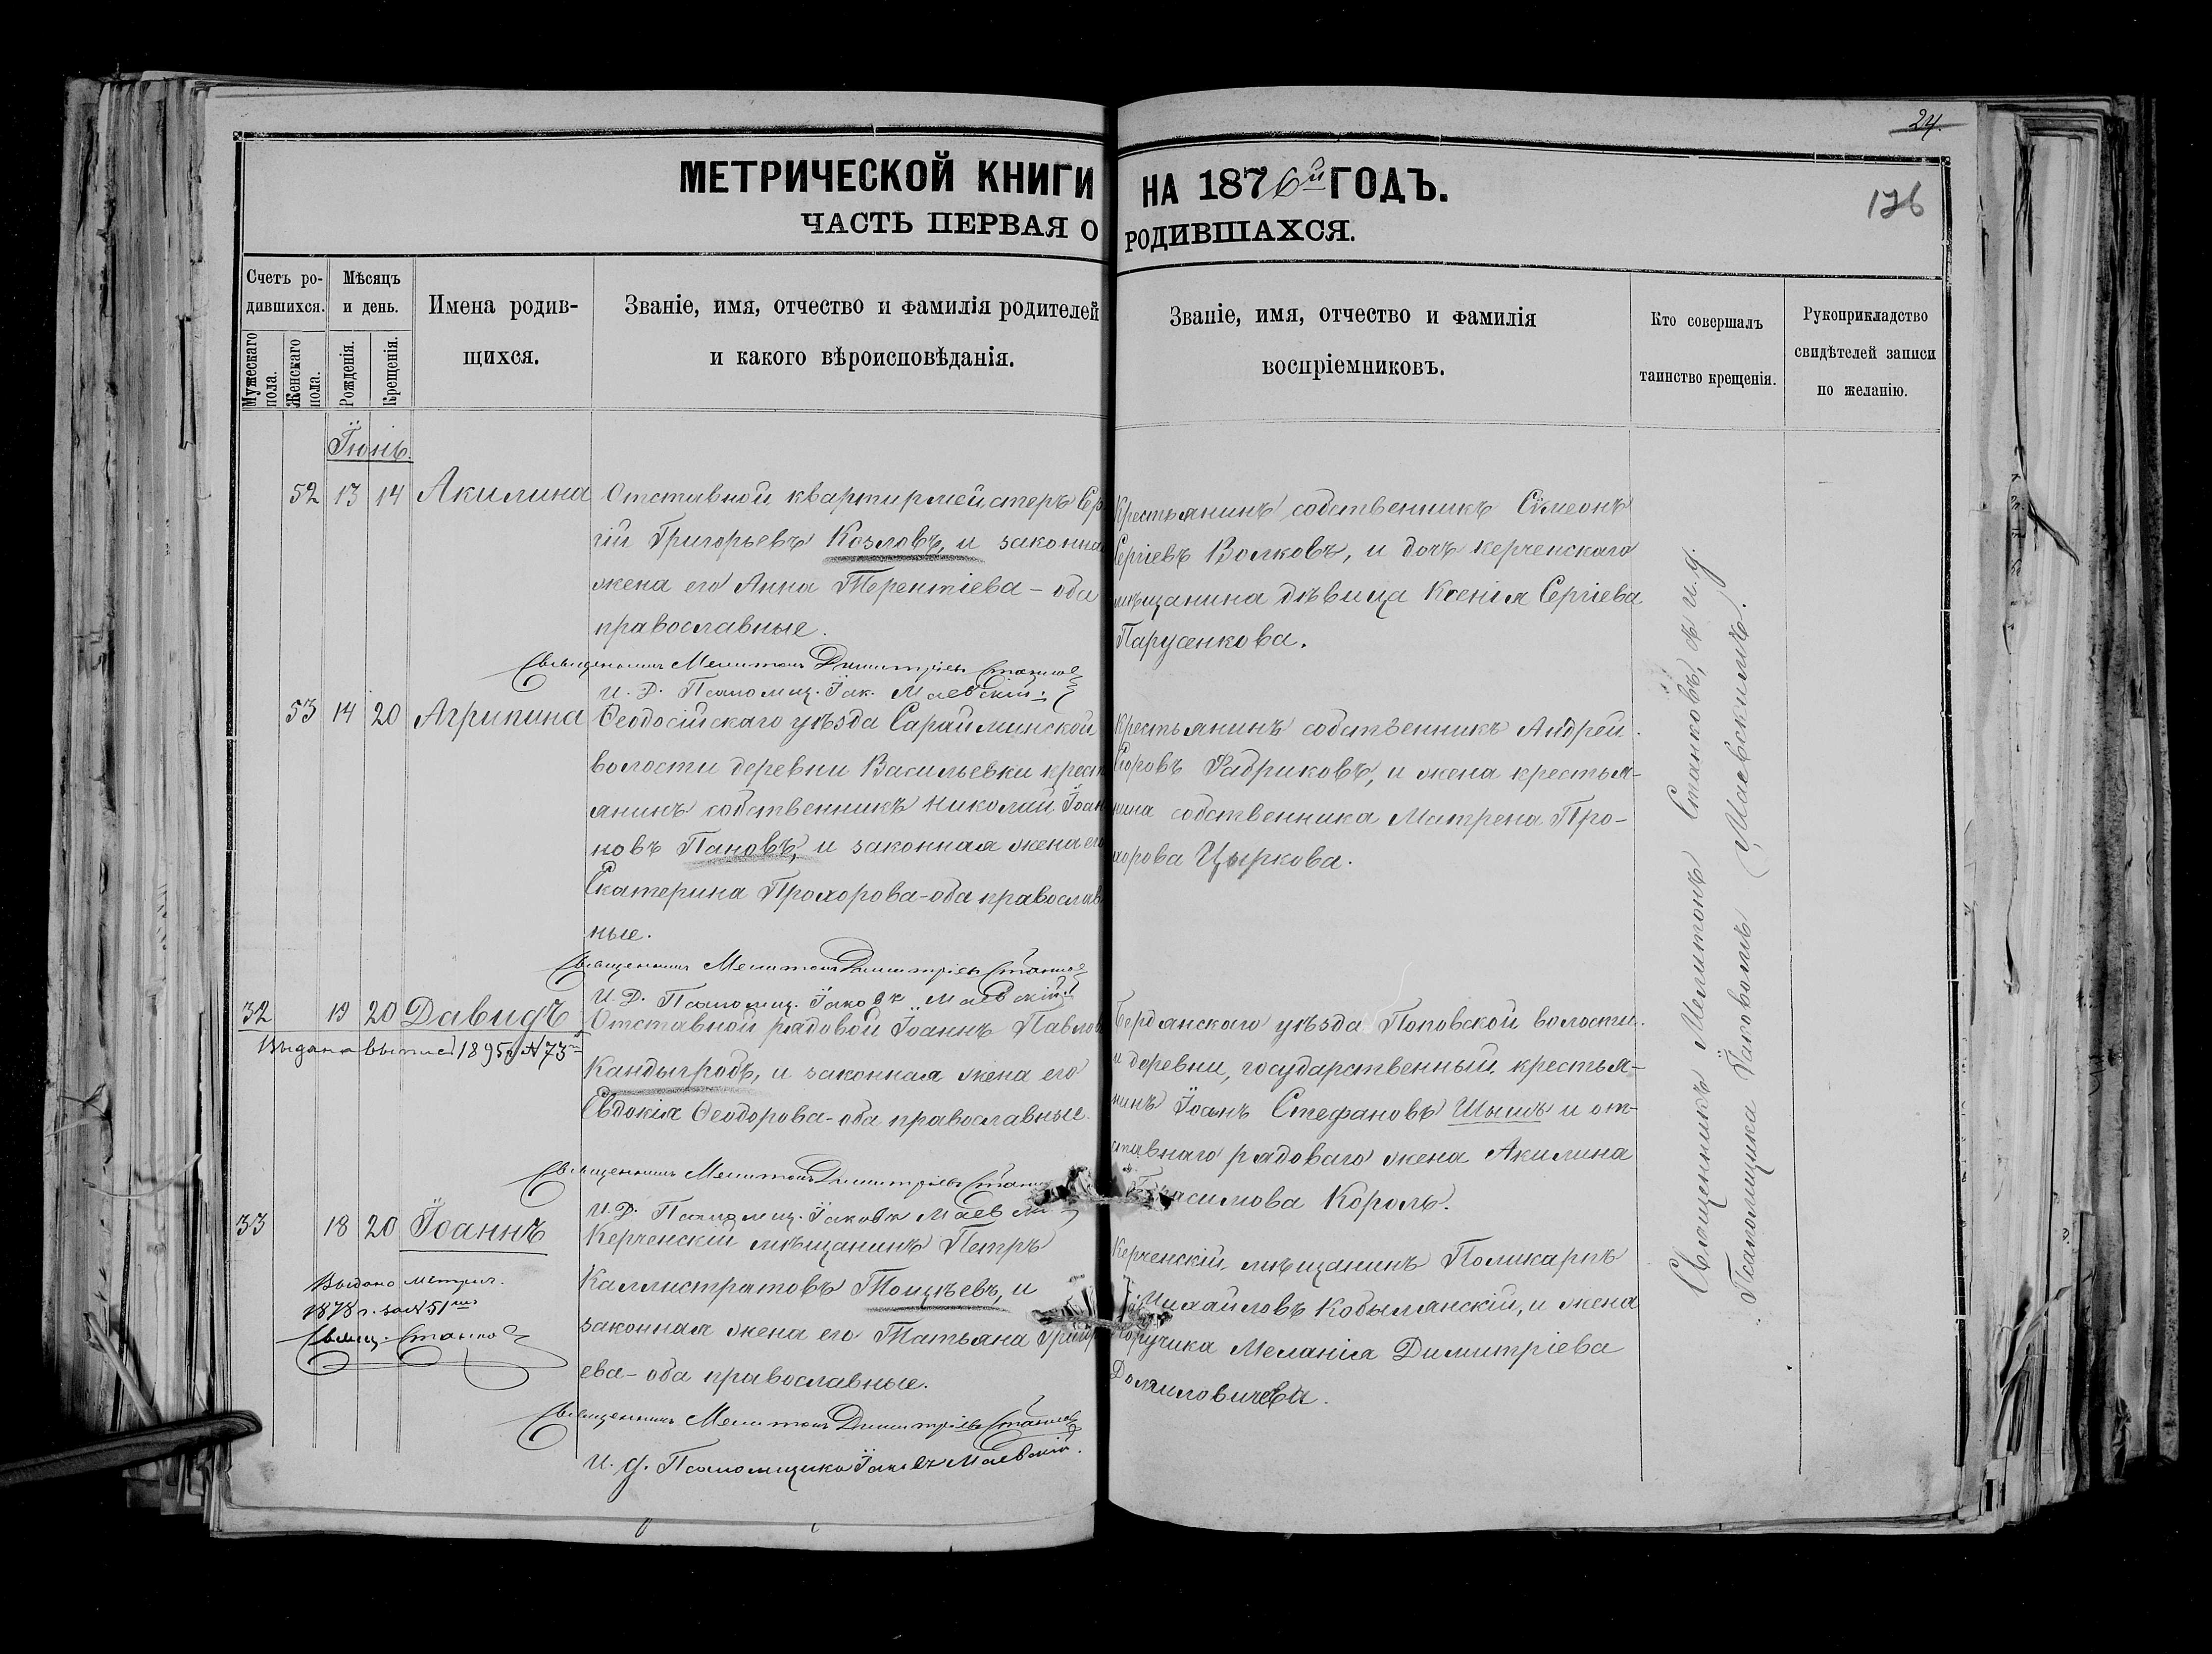 24.
176
МЕТРИЧЕСКОЙ КНИГИ НА 1876й ГОДЪ.
ЧАСТЬ ПЕРВАЯ О РОДИВШАХСЯ.
Счетъ ро-
дившихся.
Мужескаго пола.
Женскаго пола.
Мѣсяцъ
и день.
Рожденія.
Крещенія.
Имена родив-
шихся.
Званіе, имя, отчество и фамилія родителей
и какого вѣроисповѣданія.
Званіе, имя, отчество и фамилія
воспріемниковъ.
Кто совершалъ
таинство крещенія.
Рукоприкладство
свидѣтелей записи
по желанію.
Іюнь.
52 13 14 Акилина
Отставной квартирмейстеръ Сер
гій Григорьевъ Козловъ, и законная
жена его Анна Терентіева - оба
православные.
Священникъ Мелитонъ Димитріевъ Станковъ
И. Д. Псаломщ. Іак. Маевскій.
Крестьянинъ собственникъ Сѵмеонъ
Сергіевъ Волковъ, и дочь керченскаго
мѣщанина дѣвица Ксенія Сергіева
Парусенкова.
53 14 20 Агрипина
Ѳеодосійскаго уѣзда Сарайминской
волости деревни Васильевки крест
янинъ собственникъ Николай Іоан
новъ Пановъ, и законная жена его
Екатерина Прохорова-оба православ
ные.
Священникъ Мелитонъ Димитріевъ Станковъ
И. Д. Псаломщ. Іаковъ Маевскій
Крестьянинъ собственникъ Андрей
Егоровъ Фабриковъ, и жена крестья-
нина собственника Матрена Про-
хорова Цыркова.
32 19 20 Давидъ
Выдана выпись 1895 г. № 73
Отставной рядовой Іоаннъ Павлов
Кандыгробъ, и законная жена его
Евдокія Ѳеодорова-оба православные.
Священникъ Мелитонъ Димитріевъ Станковъ
И. Д. Псаломщ. Іаковъ Маевскій
Бердянскаго уѣзда Поповской волости
и деревни, государственный крестья-
нинъ Іоанъ Стефановъ Шышъ и от-
ставнаго рядоваго жена Акилина
Герасимова Король.
33 18 20 Іоаннъ
Выдано метрич.
1878 г. за № 51мъ
Свящ. Станковъ
Керченскій мѣщанинъ Петръ
Каллистратовъ Тощѣевъ, и
законная жена его Татьяна Григорь
ева - оба православные.
Священникъ Мелитонъ Димитріевъ Станковъ
И. д. Псаломщика Іаковъ Маевскій.
Керченскій мѣщанинъ Поликарпъ
Михайловъ Кобылянскій, и жена
поручика Меланія Димитріева
Священникъ Мелитонъ Станковъ, съ и. д.
Псаломщика Іаковомъ Маевскимъ.